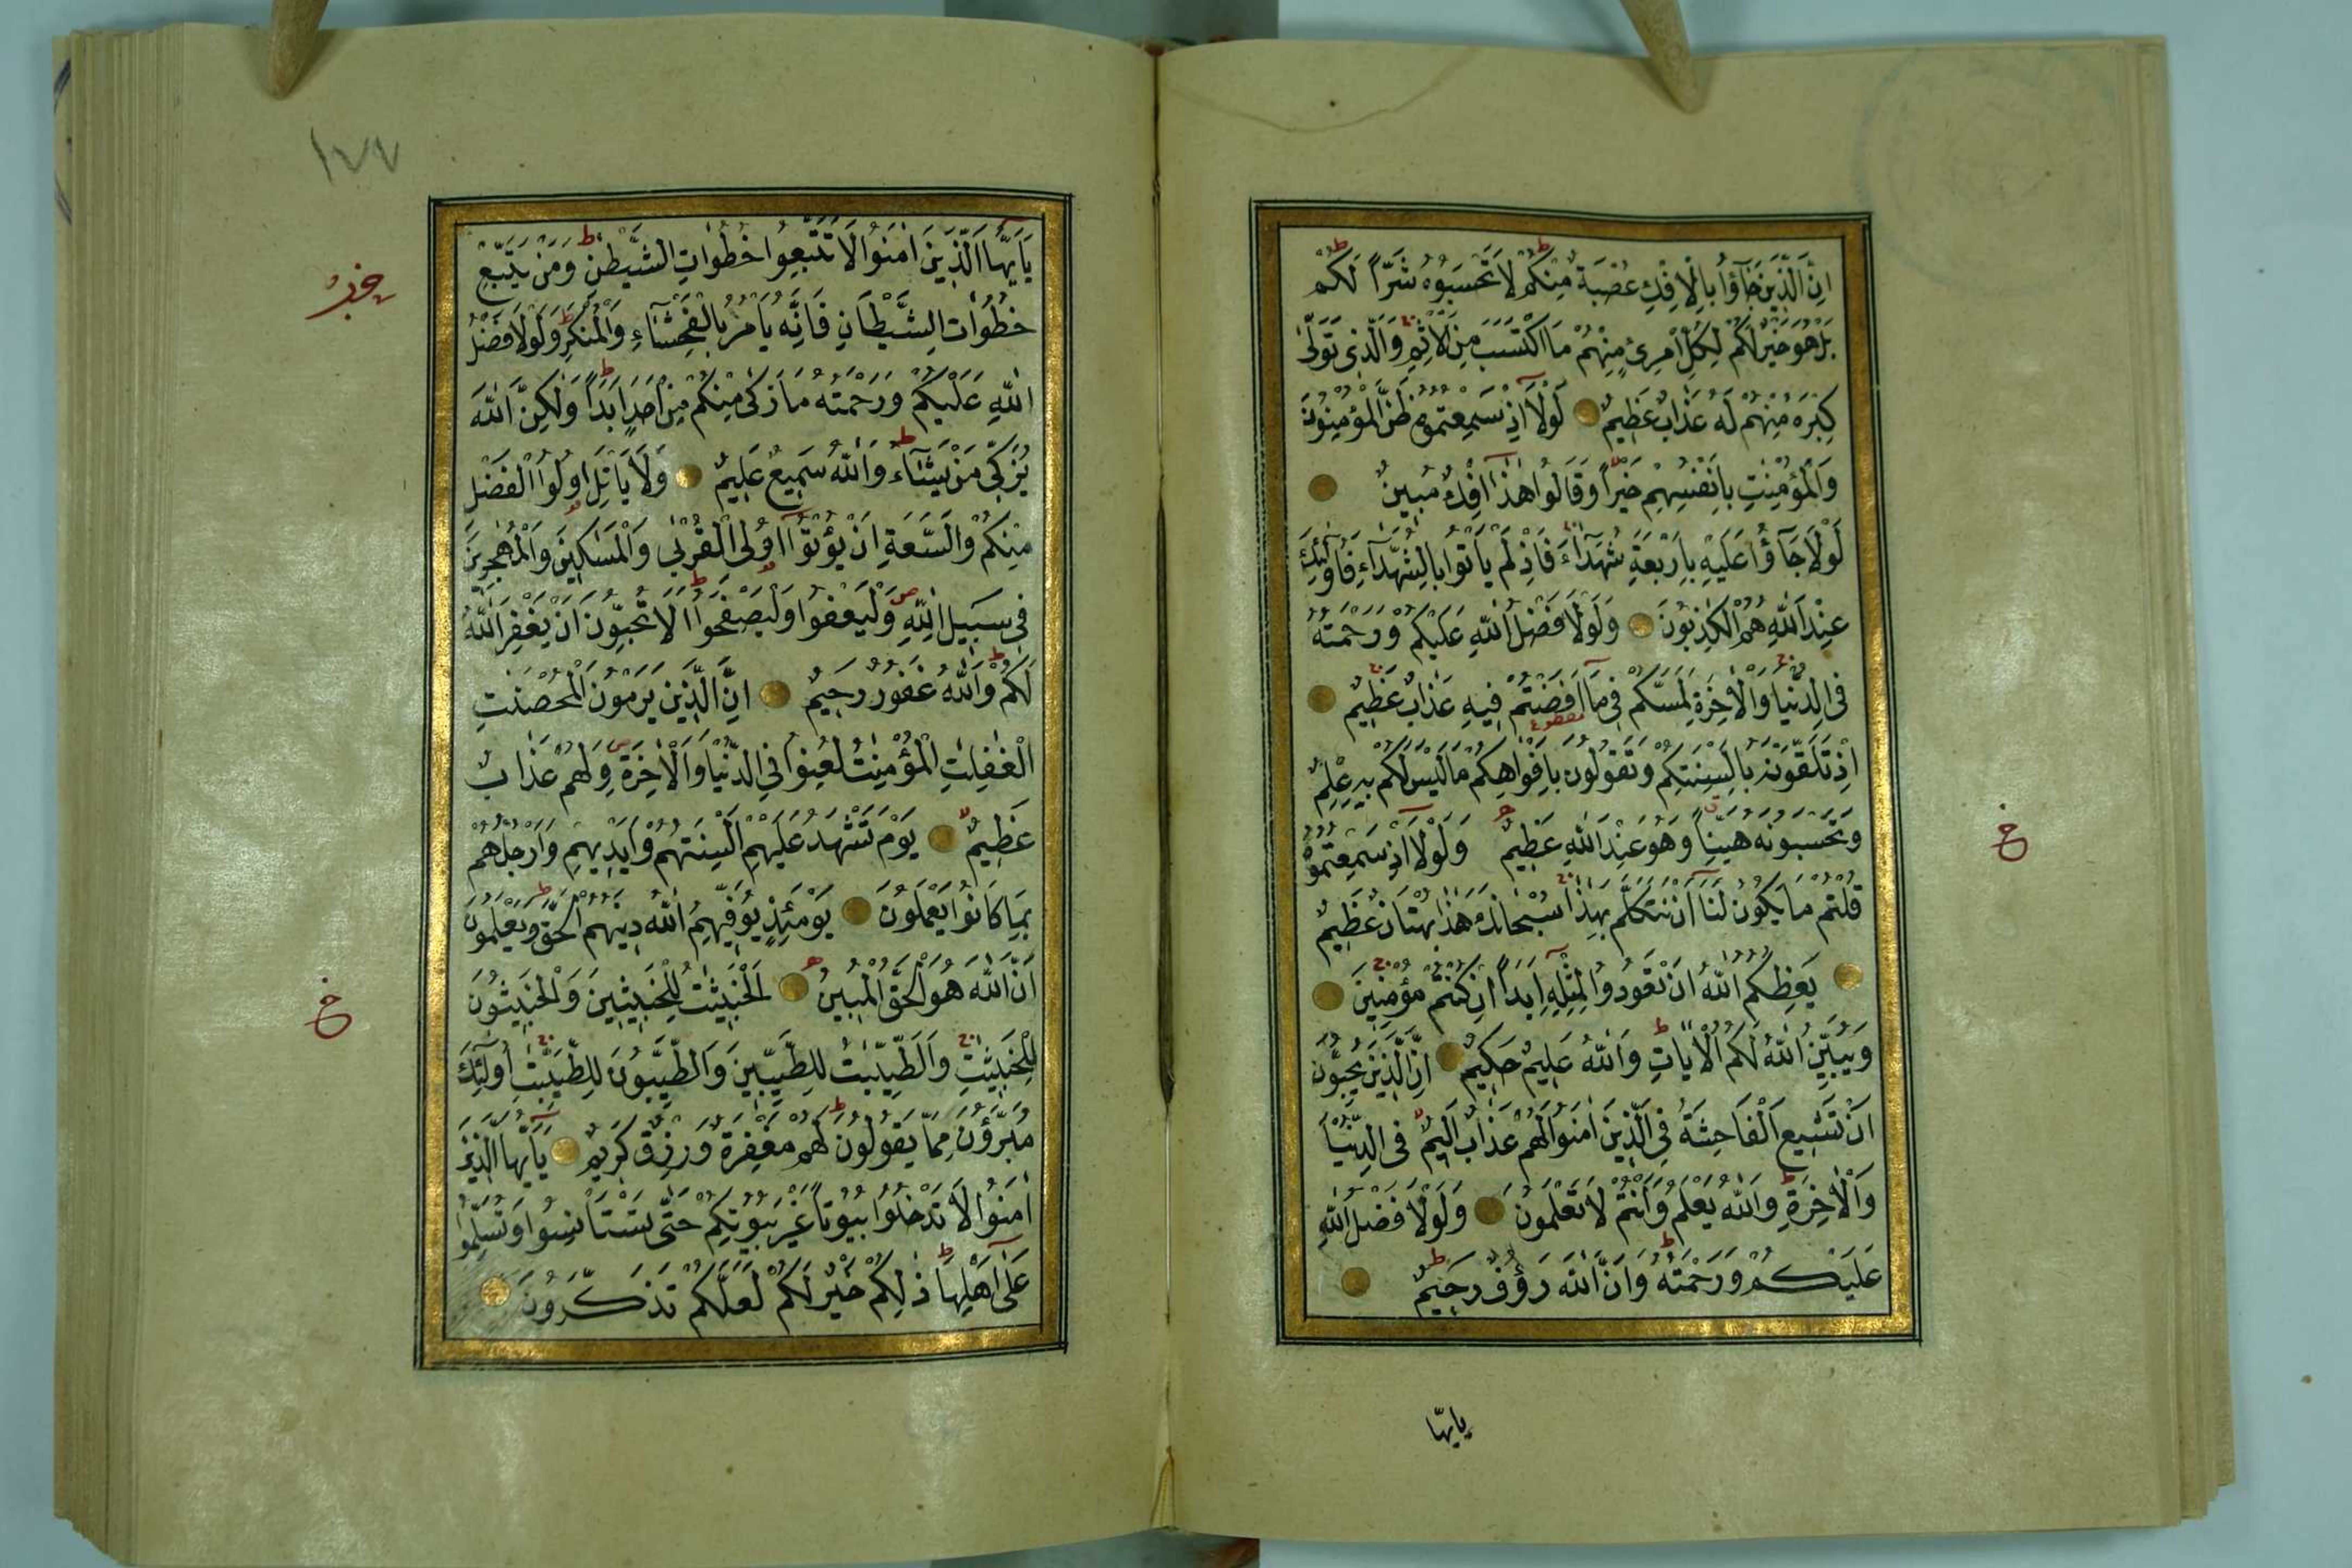 اِنَّ الَّذِينَ جَآؤُا بِالْاِفْكِ عُصْبَةٌ مِنْكُمْ لَا تَحْسَبُوهُ شَرّاً لَكُمْ
بَلْ هُوَ خَيْرٌ لَكُمْ لِكُلِّ امْرِئٍ مِنْهُمْ مَا اكْتَسَبَ مِنَ الْاِثْمِ وَالَّذِى تَوَلّٰى
كِبْرَهُ مِنْهُمْ لَهُ عَذَابٌ عَظِيمٌ لَوْلَا اِذْ سَمِعْتُمُوهُ ظَنَّ الْمُؤْمِنُونَ
وَالْمُؤْمِنٰتِ بِاَنْفُسِهِمْ خَيْراً وَقَالُوا هٰذَا اِفْكٌ مُبِينٌ
لَوْلَا جَآؤُا عَلَيْهِ بِاَرْبَعَةِ شُهَدَآءَ فَاِذْ لَمْ يَاْتُوا بِالشُّهَدَآءِ فَاُولٰئِكَ
عِنْدَ اللّٰهِ هُمُ الْكٰذِبُونَ وَلَوْلَا فَضْلُ اللّٰهِ عَلَيْكُمْ وَرَحْمَتُهُ
فِى الدُّنْيَا وَالْاٰخِرَةِ لَمَسَّكُمْ فِى مَآ اَفَضْتُمْ فِيهِ عَذَابٌ عَظِيمٌ
اِذْ تَلَقَّوْنَهُ بِاَلْسِنَتِكُمْ وَتَقُولُونَ بِاَفْوَاهِكُمْ مَا لَيْسَ لَكُمْ بِهِ عِلْمٌ
وَتَحْسَبُونَهُ هَيِّناً وَهُوَ عِنْدَ اللّٰهِ عَظِيمٌ وَلَوْلَا اِذْ سَمِعْتُمُوهُ
قُلْتُمْ مَا يَكُونُ لَنَا اَنْ نَتَكَلَّمَ بِهٰذَا سُبْحَانَكَ هٰذَا بُهْتَانٌ عَظِيمٌ
يَعِظُكُمُ اللّٰهُ اَنْ تَعُودُوا لِمِثْلِهِ اَبَداً اِنْ كُنْتُمْ مُؤْمِنِينَ
وَيُبَيِّنُ اللّٰهُ لَكُمُ الْاٰيَاتِ وَاللّٰهُ عَلِيمٌ حَكِيمٌ اِنَّ الَّذِينَ يُحِبُّونَ
اَنْ تَشِيعَ الْفَاحِشَةُ فِى الَّذِينَ اٰمَنُوا لَهُمْ عَذَابٌ اَلِيمٌ فِى الدُّنْيَا
وَالْاٰخِرَةِ وَاللّٰهُ يَعْلَمُ وَاَنْتُمْ لَا تَعْلَمُونَ وَلَوْلَا فَضْلُ اللّٰهِ
عَلَيْكُمْ وَرَحْمَتُهُ وَاَنَّ اللّٰهَ رَؤُفٌ رَحِيمٌ
يايها
١٧٧
يَآ اَيُّهَا الَّذِينَ اٰمَنُوا لَا تَتَّبِعُوا خُطُوَاتِ الشَّيْطٰنِ وَمَنْ يَتَّبِعْ
خُطُوَاتِ الشَّيْطَانِ فَاِنَّهُ يَاْمُرُ بِالْفَحْشَآءِ وَالْمُنْكَرِ وَلَوْلَا فَضْلُ
اللّٰهِ عَلَيْكُمْ وَرَحْمَتُهُ مَا زَكٰى مِنْكُمْ مِنْ اَحَدٍ اَبَداً وَلٰكِنَّ اللّٰهَ
يُزَكِّى مَنْ يَشَآءُ وَاللّٰهُ سَمِيعٌ عَلِيمٌ وَلَا يَاْتَلِ اُولُوا الْفَضْلِ
مِنْكُمْ وَالسَّعَةِ اَنْ يُؤْتُوا اُولِى الْقُرْبٰى وَالْمَسٰكِينَ وَالْمُهٰجِرِينَ
فِى سَبِيلِ اللّٰهِ وَلْيَعْفُوا وَلْيَصْفَحُوا اَلَا تُحِبُّونَ اَنْ يَغْفِرَ اللّٰهُ
لَكُمْ وَاللّٰهُ غَفُورٌ رَحِيمٌ اِنَّ الَّذِينَ يَرْمُونَ الْمُحْصَنٰتِ
الْغٰفِلٰتِ الْمُؤْمِنٰتِ لُعِنُوا فِى الدُّنْيَا وَالْاٰخِرَةِ وَلَهُمْ عَذَابٌ
عَظِيمٌ يَوْمَ تَشْهَدُ عَلَيْهِمْ اَلْسِنَتُهُمْ وَاَيْدِيهِمْ وَاَرْجُلُهُمْ
بِمَا كَانُوا يَعْمَلُونَ يَوْمَئِذٍ يُوَفِّيهِمُ اللّٰهُ دِينَهُمُ الْحَقَّ وَيَعْلَمُونَ
اَنَّ اللّٰهَ هُوَ الْحَقُّ الْمُبِينُ اَلْخَبِيثٰتُ لِلْخَبِيثِينَ وَالْخَبِيثُونَ
لِلْخَبِيثٰتِ وَالطَّيِّبٰتُ لِلطَّيِّبِينَ وَالطَّيِّبُونَ لِلطَّيِّبٰتِ اُولٰئِكَ
مُبَرَّؤُنَ مِمَّا يَقُولُونَ لَهُمْ مَغْفِرَةٌ وَرِزْقٌ كَرِيمٌ يَآ اَيُّهَا الَّذِينَ
اٰمَنُوا لَا تَدْخُلُوا بُيُوتاً غَيْرَ بُيُوتِكُمْ حَتّٰى تَسْتَاْنِسُوا وَتُسَلِّمُوا
عَلٰى اَهْلِهَا ذٰلِكُمْ خَيْرٌ لَكُمْ لَعَلَّكُمْ تَذَكَّرُونَ